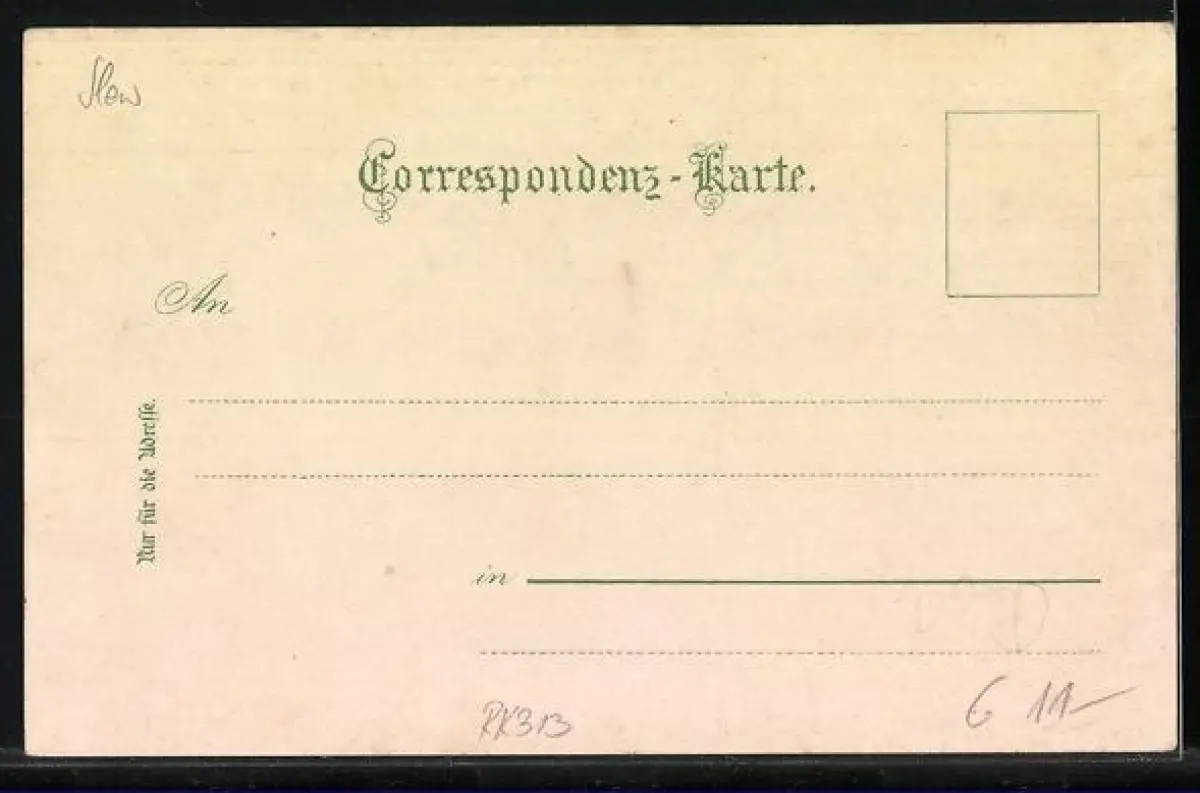 Correspondenz-Karte.
An
Nur für die Adresse.
in
RK313
G 11-